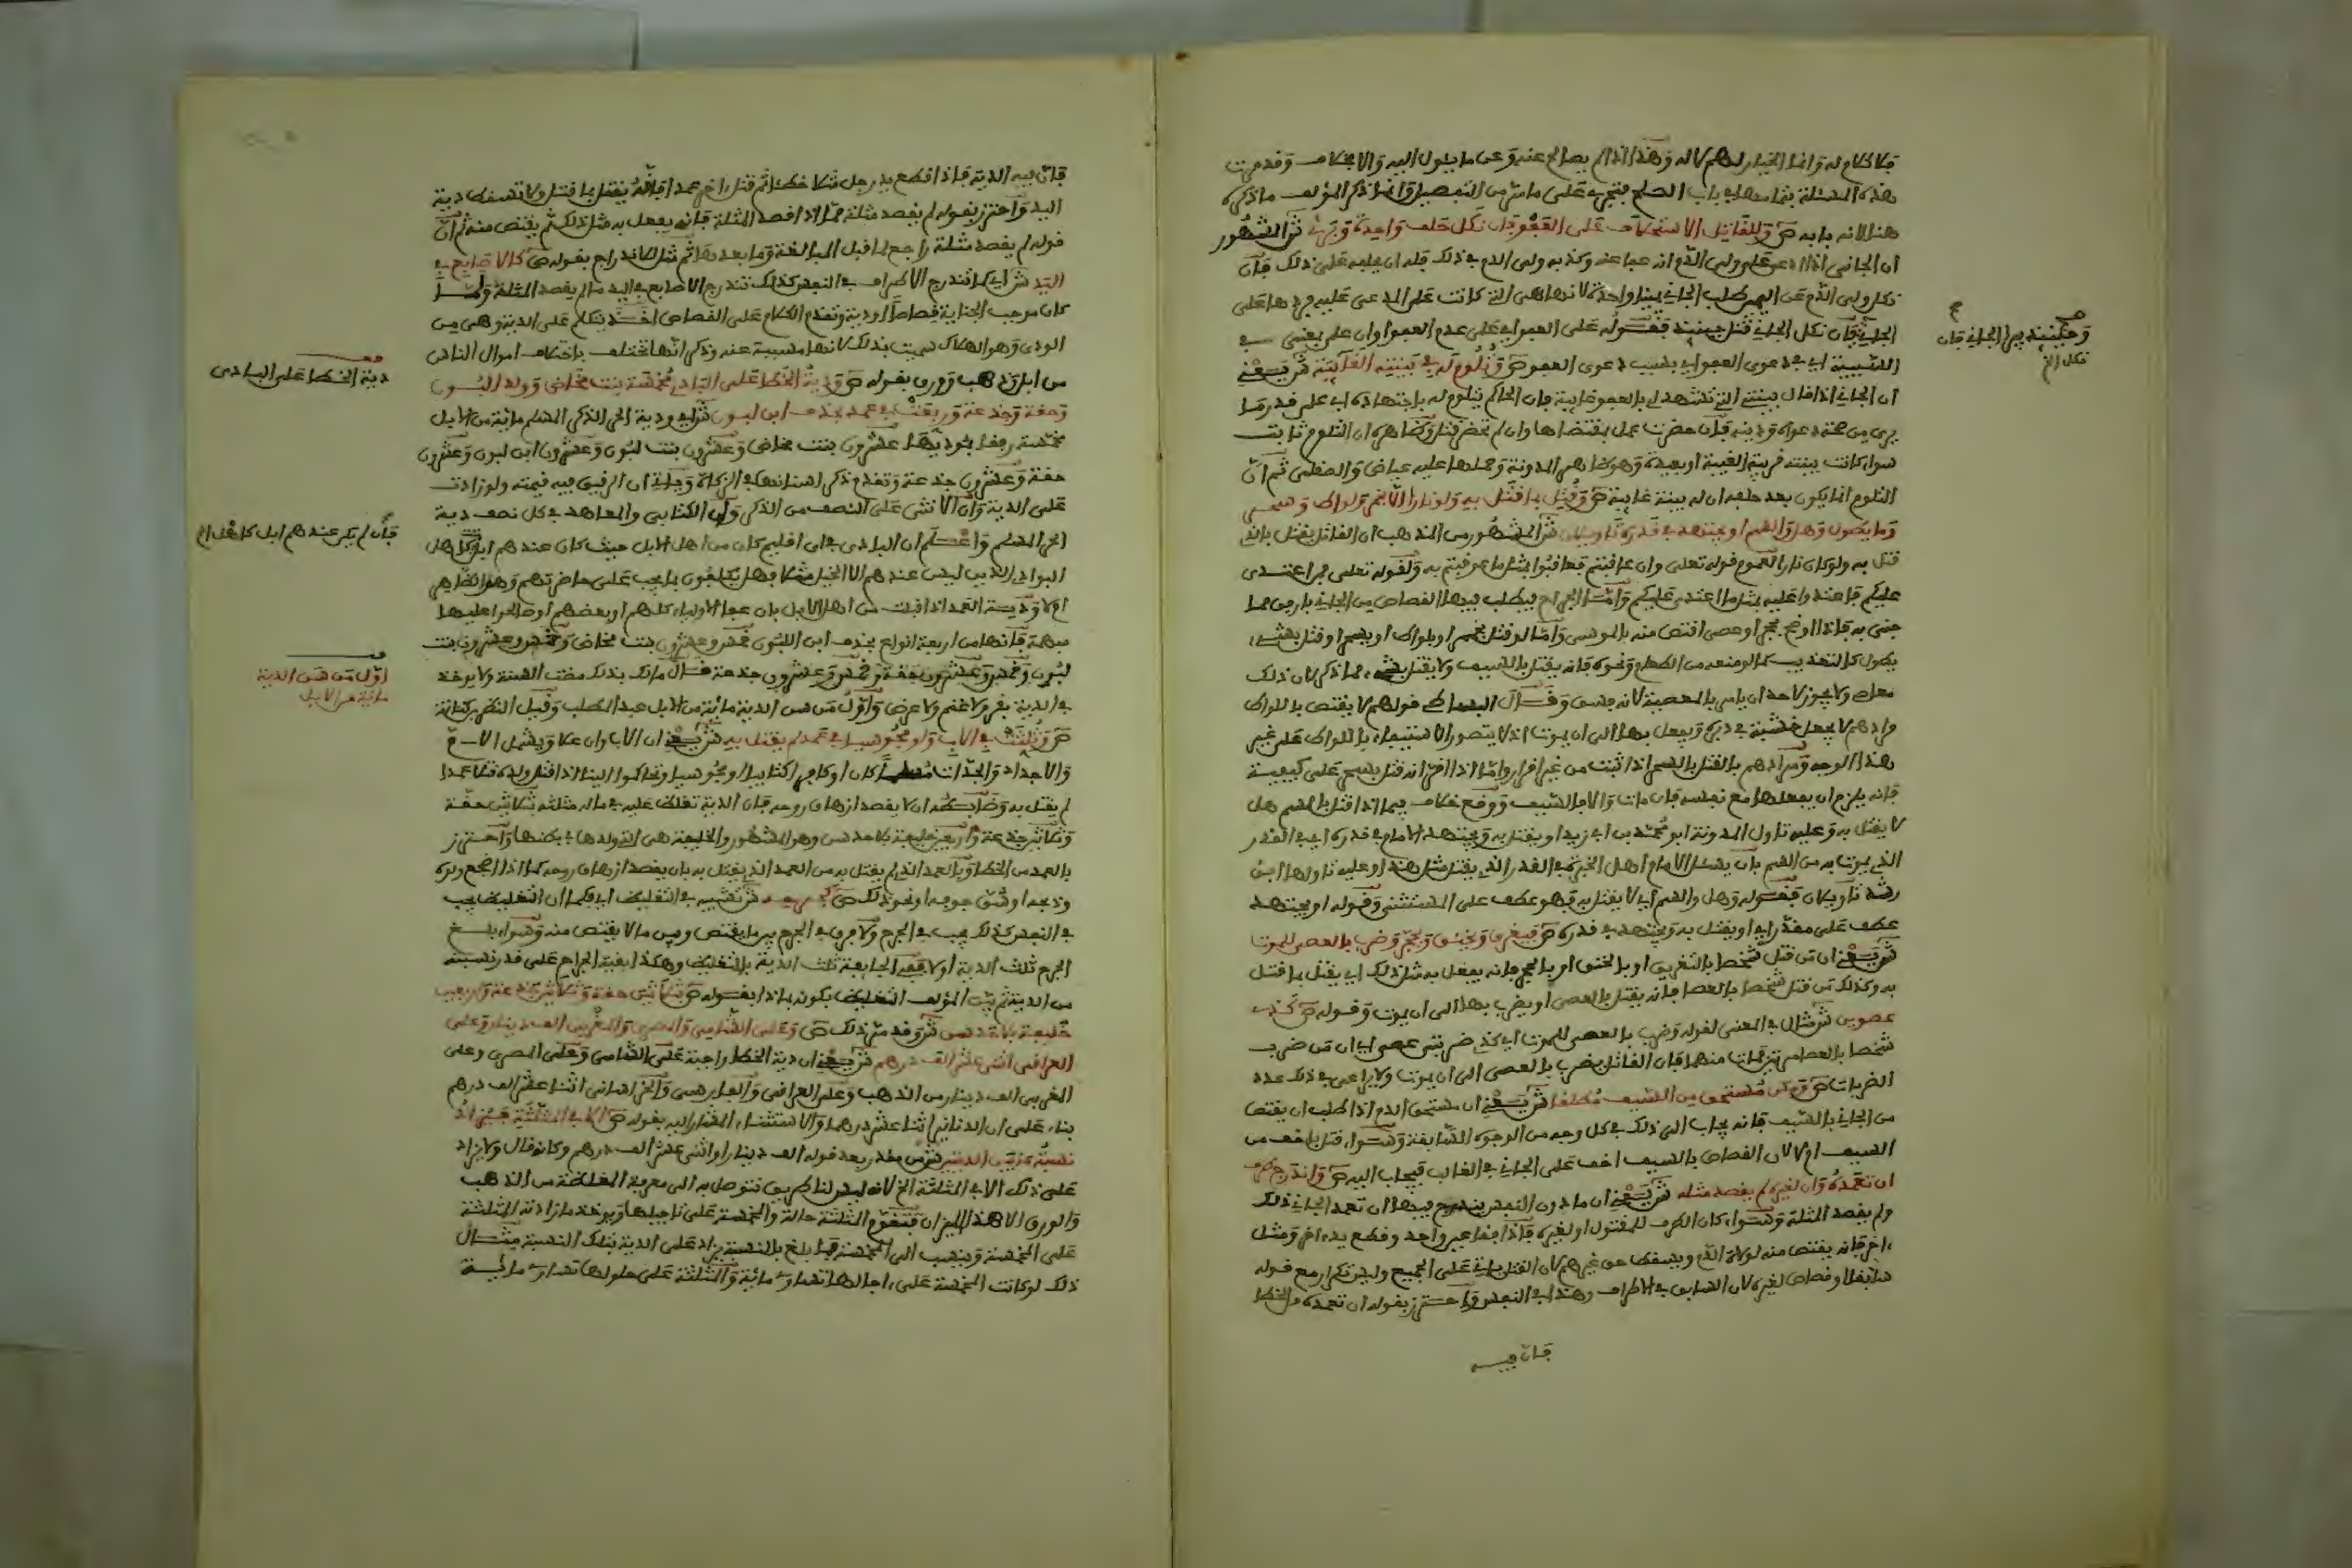 فلا كلام له وانما الخيار لهم لا له وهذا اذا لم يصالح عنه وعن ما يئول اليه والا بخلاف وقد مرت
هذه المسئلة بتمامها في باب الصلح فتجري على ما مر من التفصيل وانما ذكر المؤلف ما ذكره
هنا لانه بابه ص وللقاتل الاستحلاف على العفو فان نكل حلف واحدة وبرئ ش المشهور
ان الجاني اذا ادعى على ولي الدم انه عفا عنه وكذبه ولي الدم في ذلك فله ان يحلفه على ذلك فان
نكل ولي الدم عن اليمين طلب الجاني يمينا واحدة لانها هي التي كانت على المدعى عليه فردها على
الجاني فان نكل الجاني قتل حينئذ فقوله على العفو اي على عدم العفو او ان على بمعنى في
السببية اي في دعوى العفو اي بسبب دعوى العفو ص وتلوم له في بينته الغائبة ش يعني
ان الجاني اذا قال بينتي التي تشهد لي بالعفو غائبة فان الحاكم يتلوم له باجتهاده اي على قدر ما
يرى من صحة دعواه ودينه فان حضرت عمل بمقتضاها وان لم تحضر قتل وظاهره ان التلوم ثابت
سواء كانت بينته قريبة الغيبة او بعيدة وهو ظاهر المدونة وحملها عليه عياض والصقلي ثم ان
التلوم انما يكون بعد حلفه ان له بينة غائبة ص وقتل بما قتل به ولو نارا الا بخمر ولواط وسحر
وما يطول وهل والسم او يجتهد في قدره تاويلان ش المشهور من المذهب ان القاتل يقتل بالذي
قتل به ولو كان نارا لعموم قوله تعلى وان عاقبتم فعاقبوا بمثل ما عوقبتم به ولقوله تعلى فمن اعتدى
عليكم فاعتدوا عليه بمثل ما اعتدى عليكم واما الجراح فيطلب فيها القصاص من الجاني بارفق مما
جنى به فاذا اوضح بحجر او عصى اقتص منه بالموسى واما لو قتل بخمر او بلواط او بسحر او قتل بشيء
يطول كالتعذيب كما لو منعه من الطعام ونحوه فانه يقتل بالسيف ولا يقتل بشيء مما ذكر لان ذلك
معاص ولا يجوز لاحد ان يامر بالمعصية لانه فسق وقال البساطي قولهم لا يقتص باللواط
مرادهم لا يجعل خشبة في دبره ويفعل بها الى ان يموت اذ لا يتصور الاستيفاء باللواط على غير
هذا الوجه ومرادهم بالقتل بالسحر اذا ثبت من غير اقرار واما اذا اقر انه قتل بسحر على كيفية
فانه يلزم ان يفعلها مع نفسه فان مات والا فالسيف ووقع خلاف فيما اذا قتل بالسم هل
لا يقتل به وعليه تاول المدونة ابو محمد بن ابي زيد او يقتل به ويجتهد الامام في قدره اي في القدر
الذي يموت به من السم بان يسئل الامام اهل الخبرة في القدر الذي يقتل مثل هذا وعليه تاولها ابن
رشد تاويلان فقوله وهل والسم اي لا يقتل به فهو عطف على المستثنى وقوله او يجتهد
عطف على مقدر اي او يقتل به ويجتهد في قدره ص فيغرق ويخنق ويحجر وضرب بالعصى للموت
ش يعني ان من قتل شخصا بالتغريق او بالخنق او بالحجر فانه يفعل به مثل ذلك اي يقتل بما قتل
به وكذلك من قتل شخصا بالعصا فانه يقتل بالعصى او يضرب بها الى ان يموت وقوله ص كذي
عصوين ش مثال في المعنى لقوله وضرب بالعصى للموت اي كذي ضربتي عصى اي ان من ضرب
شخصا بالعصا مرتين فمات منهما فان القاتل يضرب بالعصى الى ان يموت ولا يراعى في ذلك عدد
الضربات ص ومكن مستحق من السيف مطلقا ش يعني ان مستحق الدم اذا طلب ان يقتص
من الجاني بالسيف فانه يجاب الى ذلك في كل وجه من الوجوه السابقة وسواء قتل باخف من
السيف ام لا لان القصاص بالسيف اخف على الجاني في الغالب فيجاب اليه ص واندرج طرف
ان تعمده وان لغيره لم يقصد مثله ش يعني ان ما دون النفس يندرج فيها ان تعمد الجاني ذلك
ولم يقصد المثلة وسواء كان الطرف للمقتول او لغيره فاذا فقا عين واحد وقطع يد اخر وقتل
اخر فانه يقتص منه لولاة الدم ويسقط حق غيرهم لان القتل ياتي على الجميع وليس تكرار مع قوله
سابقا او قصاص لغيره لان السابق في الاطراف وهذا في النفس واحترز بقوله ان تعمده من الخطا
فان فيه
وحينئذ يبرا الجاني فان
نكل الخ
فان فيه الدية فاذا قطع يد رجل مثلا خطئا ثم قتل اخر عمدا فانه يقتل بما قتل ولا تسقط دية
اليد واحترز بقوله لم يقصد مثلة مما اذا قصد المثلة فانه يفعل به مثل ذلك ثم يقتص منه ثم ان
قوله لم يقصد مثلة راجع لما قبل المبالغة وما بعدها ثم مثل للاندراج بقوله ص كالاصابع في
اليد ش اي كما تندرج الاطراف في النفس كذلك تندرج الاصابع في اليد ما لم يقصد المثلة ولما
كان موجب الجناية قصاصا او دية وتقدم الكلام على القصاص اخذ يتكلم على الدية وهي من
الودي وهو الهلاك سميت بذلك لانها مسببة عنه وذكر انها تختلف باختلاف اموال الناس
من ابل وذهب وورق بقوله ص ودية الخطا على البادي مخمسة بنت مخاض وولدا لبون
وحقة وجذعة وربعت في عمد بحذف ابن لبون ش اي ودية الحر الذكر المسلم مائة من الابل
مخمسة رفقا بمؤديها عشرون بنت مخاض وعشرون بنت لبون وعشرون ابن لبون وعشرون
حقة وعشرون جذعة وتقدم ذكر اسنانها في الزكاة وياتي ان الرقيق فيه قيمته ولو زادت
على الدية وان الانثى على النصف من الذكر وان الكتابي والمعاهد في كل نصف دية
الحر المسلم واعلم ان البادي في اي اقليم كان من اهل الابل حيث كان عندهم ابل وكل اهل
البوادي الذين ليس عندهم الا الخيل مثلا فهل يكلفون بما يجب على حاضرتهم وهو الظاهر
ام لا ودية العمد اذا قبلت من اهل الابل بان عفا الاولياء كلهم او بعضهم او صالحوا عليها
مبهمة فانها من اربعة انواع بحذف ابن اللبون خمس وعشرون بنت مخاض وخمس وعشرون بنت
لبون وخمس وعشرون حقة وخمس وعشرون جذعة قال مالك بذلك مضت السنة ولا يوخذ
في الدية بقر ولا غنم ولا عرض واول من سن الدية مائة من الابل عبد المطلب وقيل النضر بن كنانة
ص وثلثت في الاب ولو مجوسيا في عمد لم يقتل به ش يعني ان الاب وان علا ويشمل الام
والاجداد والجدات مسلما كان او كافرا كتابيا او مجوسيا وتحاكموا الينا اذا قتل ولده قتلا عمدا
لم يقتل به وضابطه ان لا يقصد ازهاق روحه فان الدية تغلظ عليه في ماله مثلثة ثلاثين حقة
وثلاثين جذعة واربعين خليفة بلا حد سن وهو المشهور والخليفة هي التي ولدها في بطنها واحترز
بالعمد من الخطا وبالعمد الذي لم يقتل به من العمد الذي يقتل به بان يقصد ازهاق روحه كما اذا اضجع ولده
وذبحه او شق جوفه او نحو ذلك ص كجرحه ش تشبيه في التغليظ اي فكما ان التغليظ يجب
في النفس كذلك يجب في الجرح ولا فرق في الجرح بين ما يقتص وبين ما لا يقتص منه وسواء بلغ
الجرح ثلث الدية او لا ففي الجائفة ثلث الدية بالتغليظ وهكذا بقية الجراح على قدر نسبته
من الدية ثم بين المؤلف التغليظ بكونه بماذا بقوله ص ثلاثين حقة وثلاثين جذعة واربعين
خليفة بلا حد سن ش وقد مر ذلك ص وعلى الشامي والمصري والمغربي الف دينار وعلى
العراقي اثنى عشر الف درهم ش يعني ان دية الخطا واجبة على الشامي وعلى المصري وعلى
المغربي الف دينار من الذهب وعلى العراقي والفارسي والخراساني اثنا عشر الف درهم
بناء على ان الدنانير اثنا عشر درهما والاستثناء المشار اليه بقوله ص الا في المثلثة فيزاد
نسبة ما بين الديتين ش من مقدر بعد قوله الف دينار او اثنى عشر الف درهم وكانه قال ولا يزاد
على ذلك الا في المثلثة الخ لانه ليس لنا طريق نتوصل به الى معرفة المغلظة من الذهب
والورق الا هذا الميزان فتقوم المثلثة حالة والمخمسة على تاجيلها ويوخذ ما زادته المثلثة
على المخمسة وينسب الى المخمسة فما بلغ بالنسبة يزاد على الدية بتلك النسبة مثال
ذلك لو كانت المخمسة على اجالها تساوي مائة والمثلثة على حلولها تساوي مائة
دية الخطا على البادي
فان لم يكن عندهم ابل كاهل الخ
اول من سن الدية
مائة من الابل